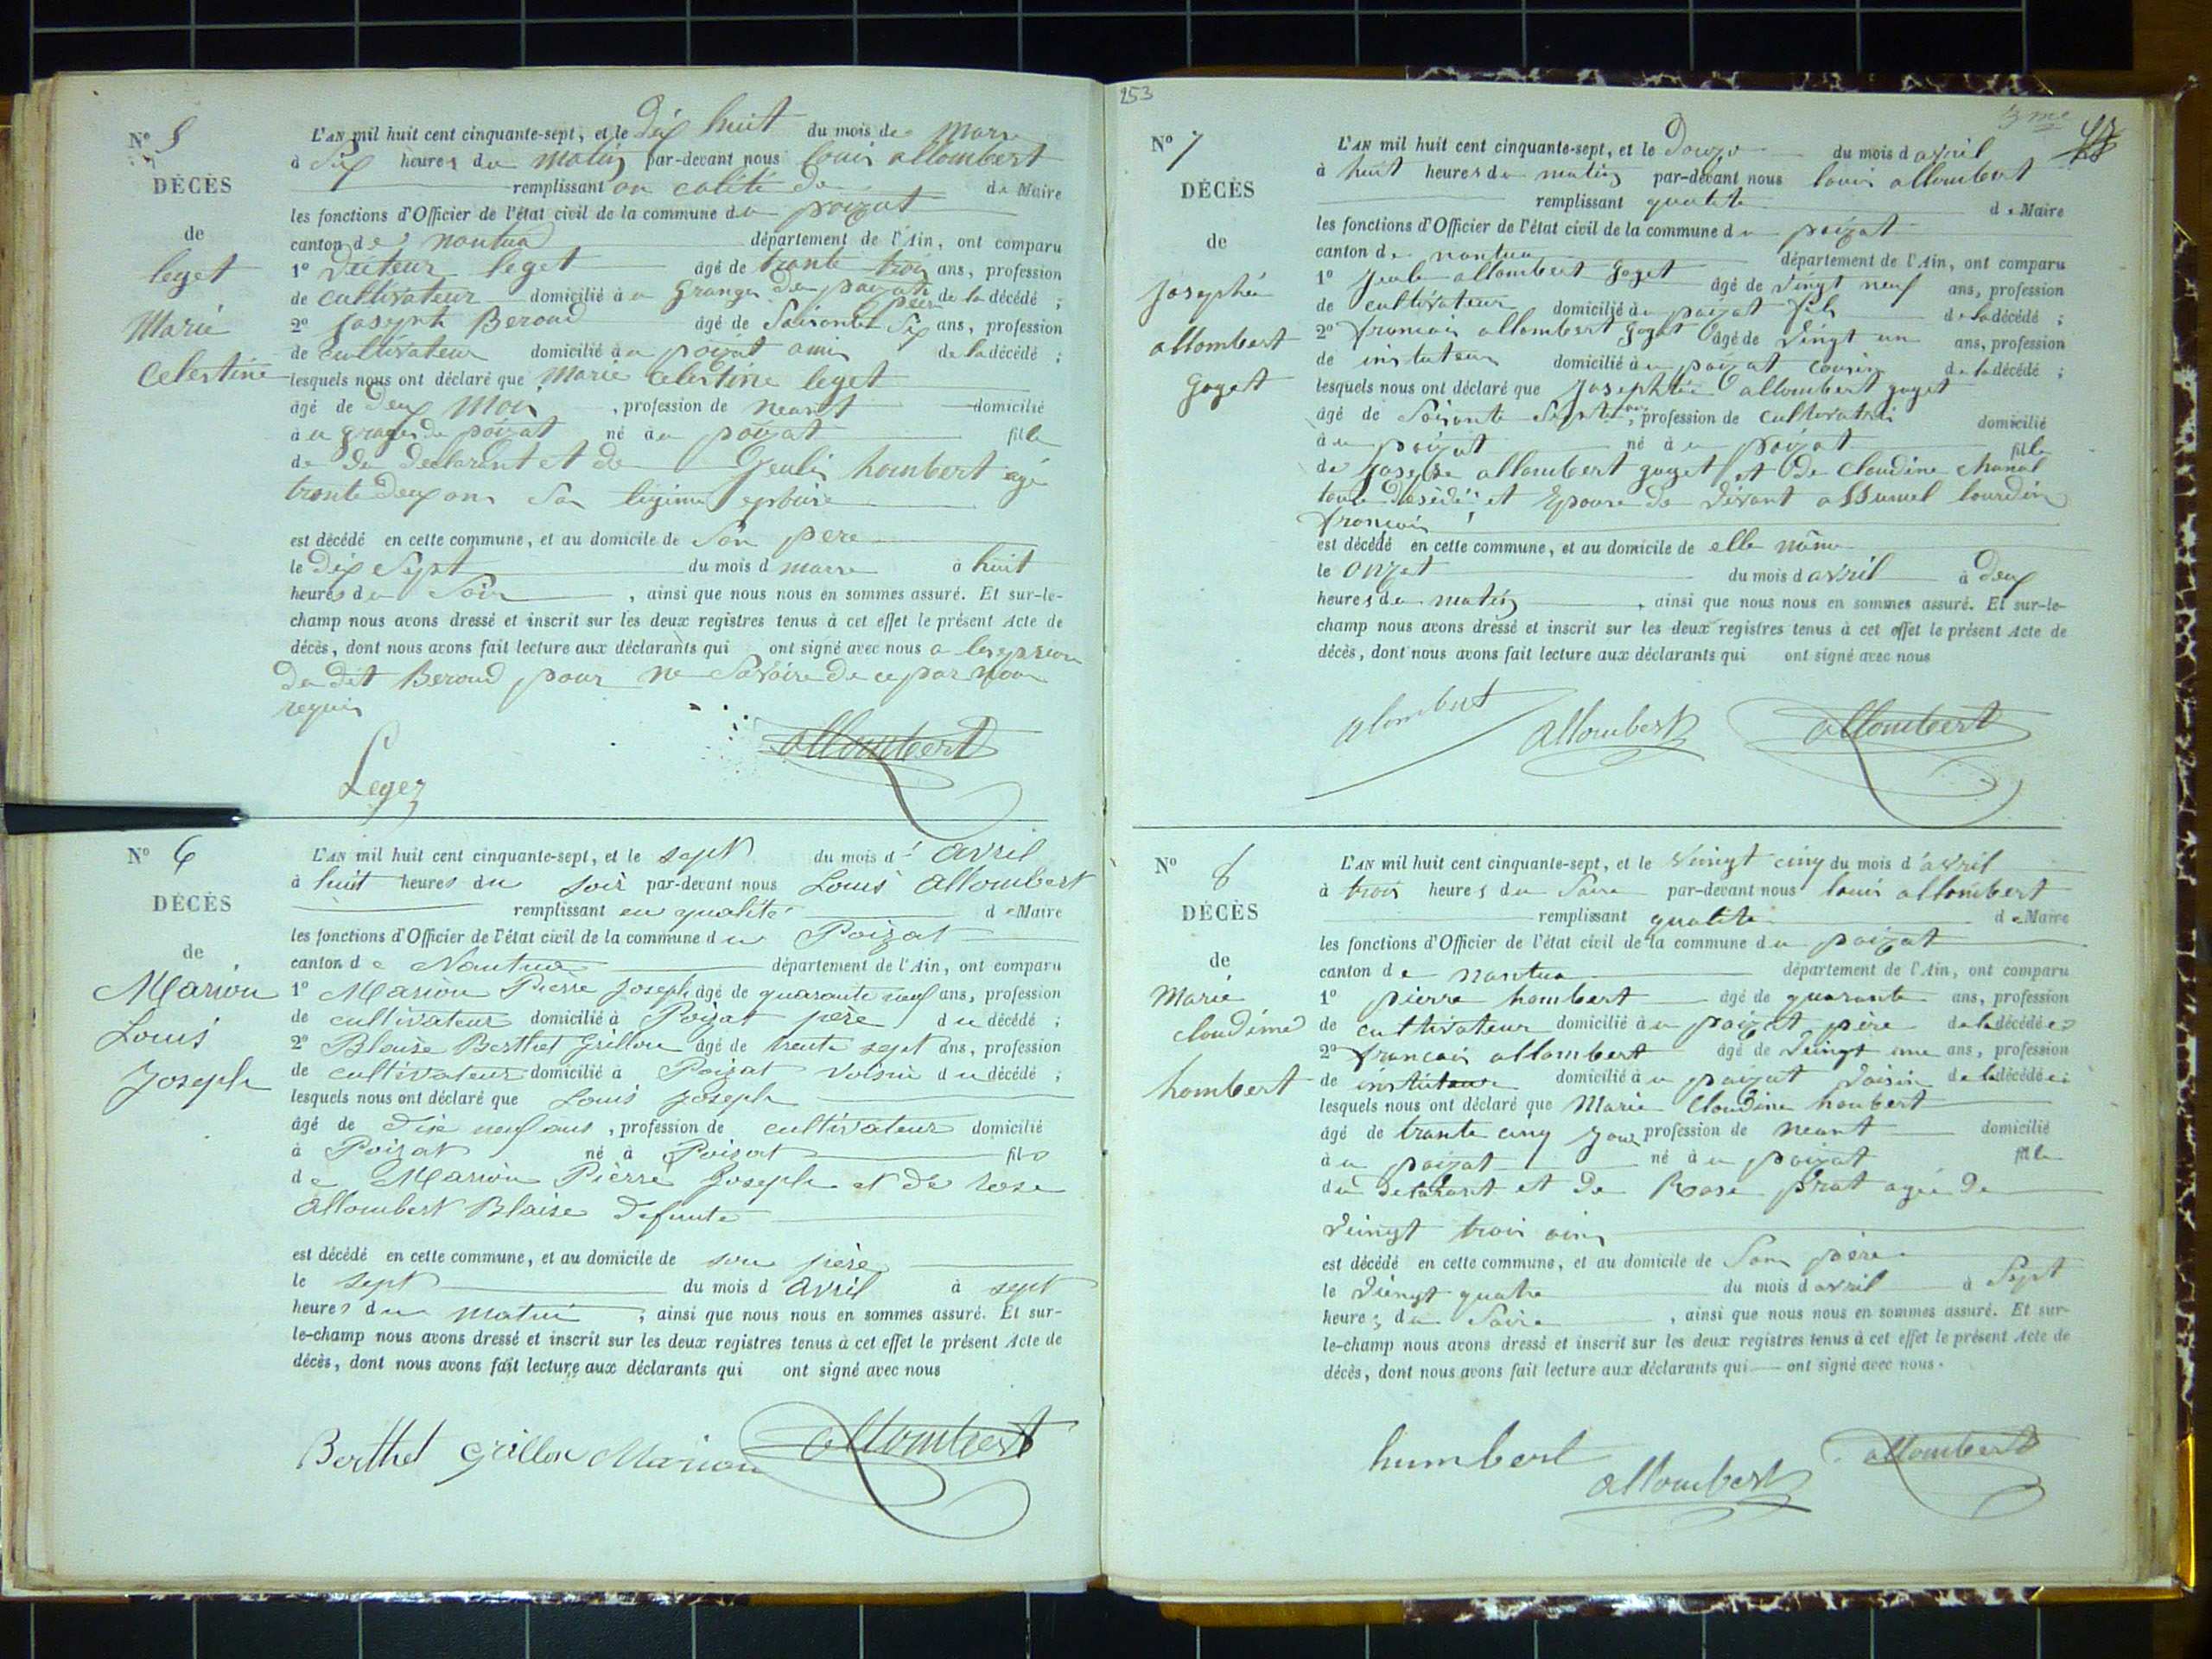 N° 5
DÉCÈS
de
leget
Marie
Celestine
L'AN mil huit cent cinquante-sept, et le Dix huit du mois de mars
à Six heures du matin par-devant nous louis allombert
remplissant en calité de de Maire
les fonctions d'Officier de l'état civil de la commune du poizat
canton de nantua département de l'Ain, ont comparu
1° leget âgé de trante trois ans, profession
de cultivateur domicilié à u Granges du poizat père de la décédé ;
2° Joseph Beroud âgé de Soisante Six ans, profession
de cultivateur domicilié à u poizat ami de la décédé ;
lesquels nous ont déclaré que Marie Celestine leget
âgé de Deux Mois , profession de neant domicilié
à u granges de poizat né à u poizat fille
de du declarant et de Jeulie hombert agé
trante Deux ans Sa legime
est décédé en cette commune, et au domicile de Son pere
le Dix Sept du mois d mars à huit
heures du Soir , ainsi que nous nous en sommes assuré. Et sur-le-
champ nous avons dressé et inscrit sur les deux registres tenus à cet effet le présent Acte de
décès, dont nous avons fait lecture aux déclarants qui ont signé avec nous a
du dit Beroud pour ne Savoire de ce par nous
requis
Leger allombert
N° 6
DÉCÈS
de
Marion
Louis
Joseph
L'AN mil huit cent cinquante-sept, et le sept du mois d' avril
à huit heures du soir par-devant nous Louis Allombert
remplissant en qualité de Maire
les fonctions d'Officier de l'état civil de la commune du Poizat
canton de Nantua département de l'Ain, ont comparu
1° Marion Pierre Joseph âgé de quarante neuf ans, profession
de cultivateur domicilié à Poizat père du décédé ;
2° Blaise Berthet Grillon âgé de trente sept ans, profession
de cultivateur domicilié à Poizat voisin du décédé ;
lesquels nous ont déclaré que Louis Joseph
âgé de dix neuf ans , profession de cultivateur domicilié
à Poizat né à Poizat fils
de Marion Pierre Joseph et de rose
Allombert Blaise defunte
est décédé en cette commune, et au domicile de son père
le sept du mois d avril à sept
heures du matin , ainsi que nous nous en sommes assuré. Et sur-
le-champ nous avons dressé et inscrit sur les deux registres tenus à cet effet le présent Acte de
décès, dont nous avons fait lecture aux déclarants qui ont signé avec nous
Berthet Grillon Marion allombert
253
3me
N° 7
DÉCÈS
de
Josephée
allombert
Goget
L'AN mil huit cent cinquante-sept, et le Douze du mois d avril
à huit heures du matin par-devant nous louis allombert
remplissant qualité de Maire
les fonctions d'Officier de l'état civil de la commune du poizat
canton de nantua département de l'Ain, ont comparu
1° allombert Goget âgé de vingt neuf ans, profession
de cultivateur domicilié à u poizat fils de la décédé ;
2° francois allombert Goget âgé de vingt un ans, profession
de instuteur domicilié à u poizat cousin de la décédé ;
lesquels nous ont déclaré que Josephtée allombert goget
âgé de Soisante Sept ans , profession de cultivatri domicilié
à u poizat né à u poizat fille
de Josephe allombert goget et de Claudine chanal
tous et Epouse de vivant lourdin
francois
est décédé en cette commune, et au domicile de elle même
le onze du mois d avril à deux
heures du matin , ainsi que nous nous en sommes assuré. Et sur-le-
champ nous avons dressé et inscrit sur les deux registres tenus à cet effet le présent Acte de
décès, dont nous avons fait lecture aux déclarants qui ont signé avec nous
alombert allombert allombert
N° 8
DÉCÈS
de
Marie
cloudine
hombert
L'AN mil huit cent cinquante-sept, et le vingt cinq du mois d'avril
à trois heures du Soire par-devant nous louis allombert
remplissant qualité de Maire
les fonctions d'Officier de l'état civil de la commune du poizat
canton de nantua département de l'Ain, ont comparu
1° pierre hombert âgé de quarante ans, profession
de cultivateur domicilié à u poizat père de la décédée
2° francois allombert âgé de vingt une ans, profession
de instuteur domicilié à u poizat voisin de la décédée ;
lesquels nous ont déclaré que Marie Cloudine hombert
âgé de trante cinq jours profession de neant domicilié
à u poizat né à u poizat fille
du declarant et de Rose prat agée de
vingt trois ans
est décédé en cette commune, et au domicile de Son père
le vingt quatre du mois d avril à Sept
heures du Soire , ainsi que nous nous en sommes assuré. Et sur-
le-champ nous avons dressé et inscrit sur les deux registres tenus à cet effet le présent Acte de
décès, dont nous avons fait lecture aux déclarants qui ont signé avec nous.
humbert allombert allombert